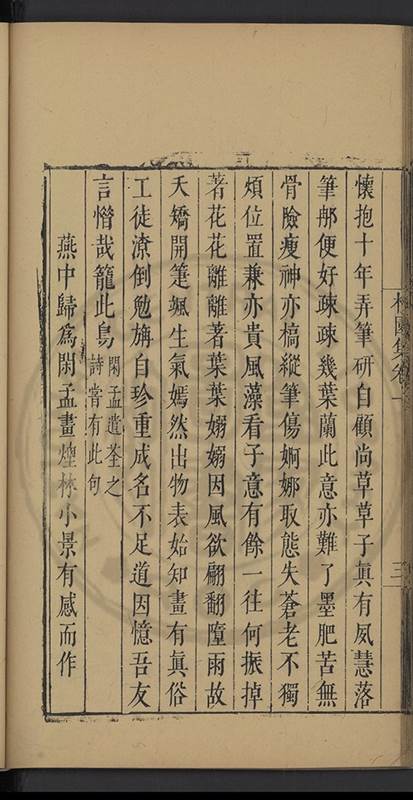 懷抱十年弄筆研自顧尚草草子眞有夙慧落
筆郍便好疎疎幾葉蘭此意亦難了墨肥苦無
骨險瘦神亦槁縱筆傷婀娜取態失蒼老不獨
煩位置兼亦貴風藻看子意有餘一往何振掉
著花花離離著葉葉嫋嫋因風欲翩翻墮雨故
夭矯開箑颯生氣嫣然出物表始知畫有眞俗
工徒潦倒勉旃自珍重成名不足道因憶吾友
言憯哉籠此鳥
閑孟遺荃之
詩嘗有此句
燕中歸爲閑孟畫煙林小景有感而作
集卷一
三